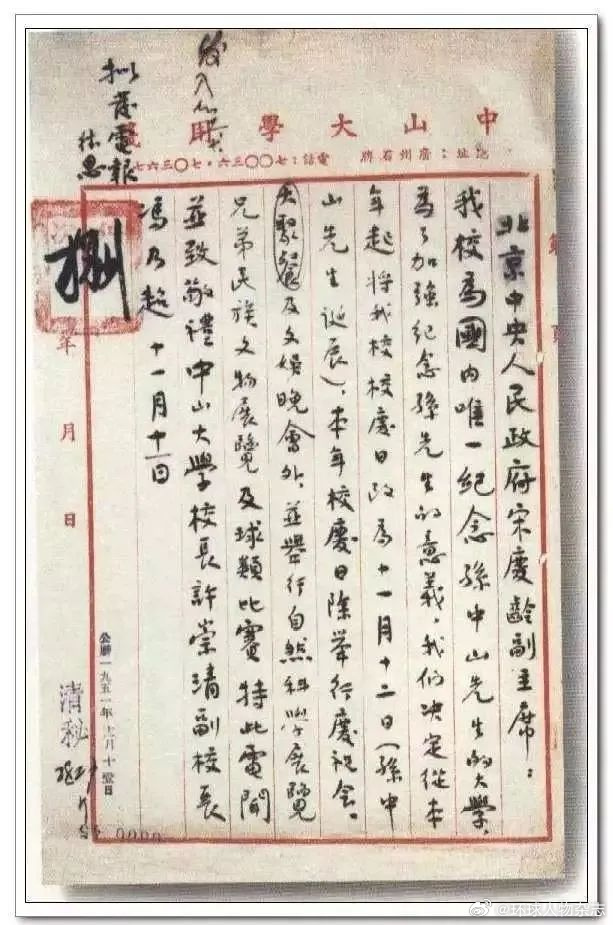 中山大學用箋
地址:廣州石牌 電話:七〇〇三六·七〇三六七
北京中央人民政府宋慶齡副主席:
我校為國内唯一紀念孫中山先生的大學,
為了加強紀念孫先生的意義,我们决定從本
年起將我校校慶日改為十一月十二日(孫中
山先生誕辰)、本年校慶日除举行慶祝会、
大聚餐及文娱晚會外,並舉行自然科學展覽
兄弟民族文物展覽及球類比賽特此電聞
並致敬禮中山大學校長許崇清副校長
馮乃超十一月十一日
拟发電報
年月日
公曆一九五一年
清秘
@环球人物杂志